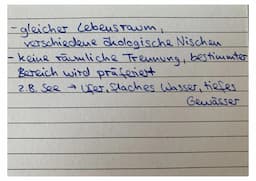 - gleicher Lebensraum,
verschiedene ökologische Nischen
- keine räumliche Trennung, bestimmter
Bereich wird präferiert
z.B. See → Ufer, flaches Wasser, tiefes
Gewässer